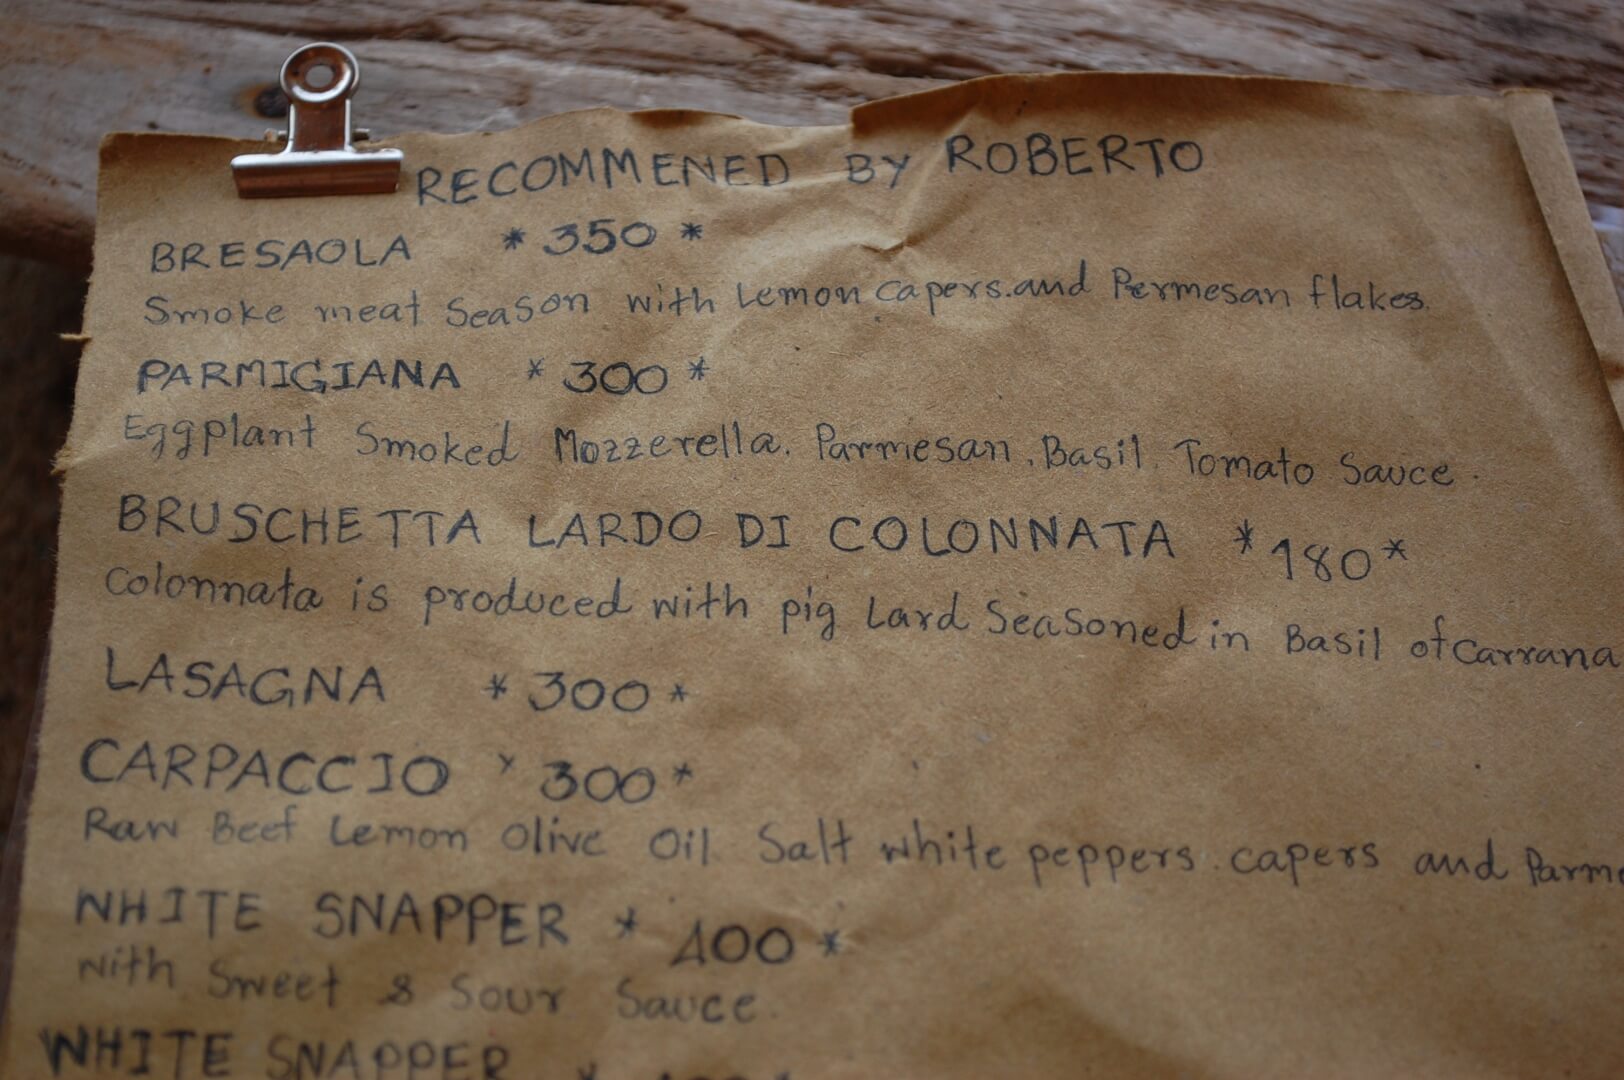 RECOMMENED BY ROBERTO
BRESAOLA *350*
Smoke meat Season with Lemon capers.and Permesan flakes.
PARMIGIANA *300*
Eggplant Smoked Mozzerella. Parmesan. Basil. Tomato Sauce.
BRUSCHETTA LARDO DI COLONNATA *180*
Colonnata is produced with pig Lard Seasoned in Basil of Carrana
LASAGNA *300*
CARPACCIO *300*
Raw Beef Lemon Olive Oil Salt white peppers. capers and Parme
WHITE SNAPPER *400*
With Sweet & Sour Sauce.
WHITE SNAPPER